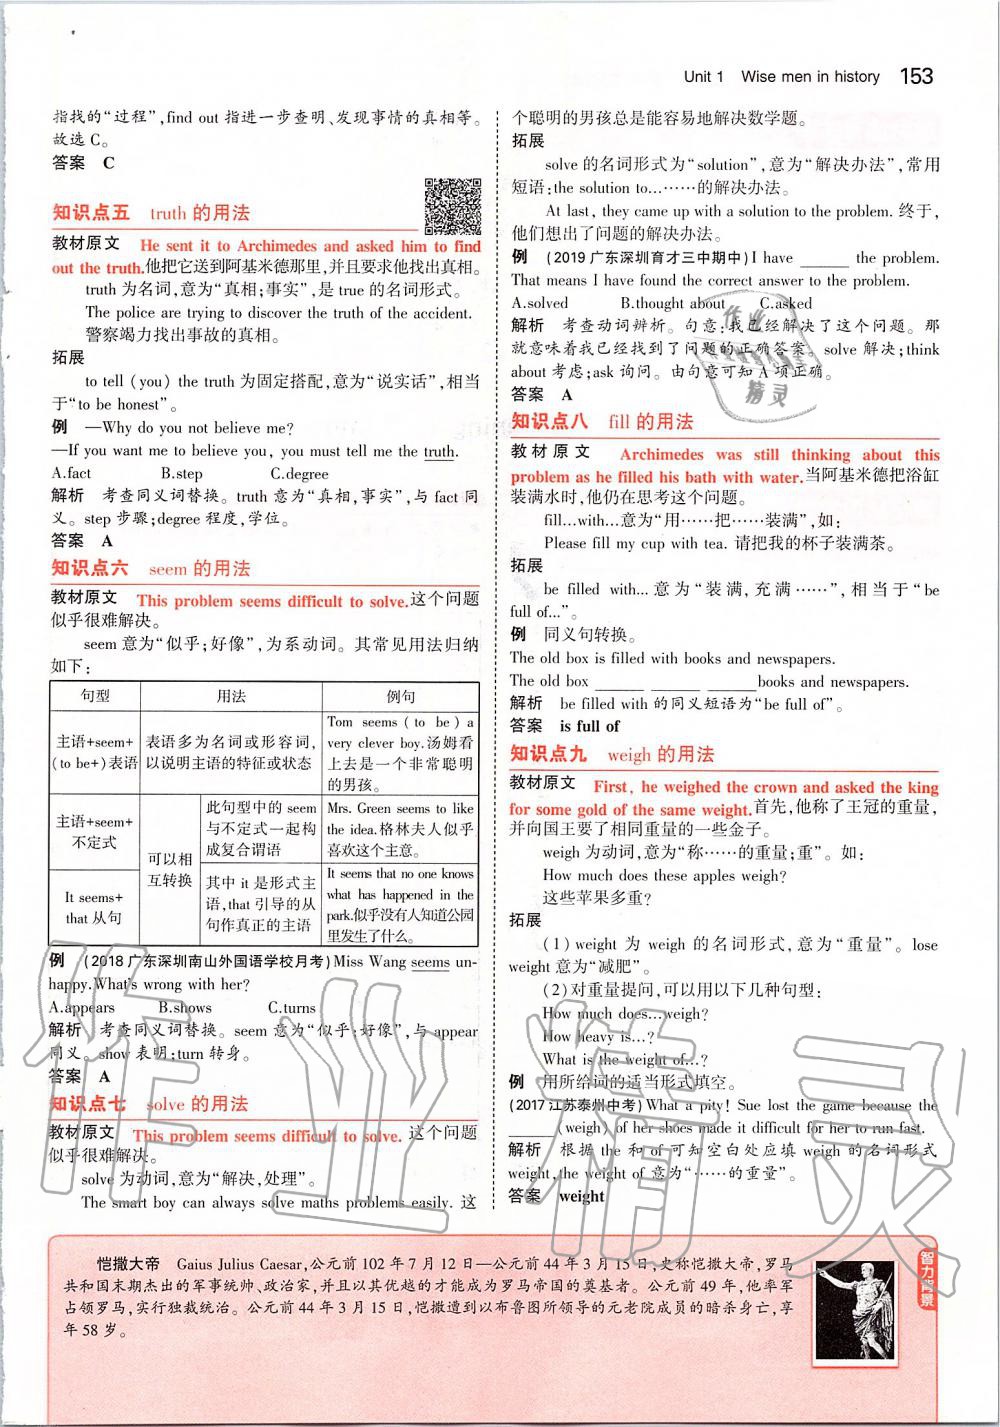 Unit 1 Wise men in history 153
指找的“过程”,find out 指进一步查明、发现事情的真相等。
故选C。
答案 C
知识点五 truth 的用法
教材原文 He sent it to Archimedes and asked him to find
out the truth.他把它送到阿基米德那里,并且要求他找出真相。
truth 为名词,意为“真相;事实”,是 true 的名词形式。
The police are trying to discover the truth of the accident.
警察竭力找出事故的真相。
拓展
to tell (you) the truth 为固定搭配,意为“说实话”,相当
于“to be honest”。
例 —Why do you not believe me?
—If you want me to believe you, you must tell me the truth.
A.fact B.step C.degree
解析 考查同义词替换。truth 意为“真相,事实”,与 fact 同
义。step 步骤;degree 程度,学位。
答案 A
知识点六 seem 的用法
教材原文 This problem seems difficult to solve.这个问题
似乎很难解决。
seem 意为“似乎;好像”,为系动词。其常见用法归纳
如下:
句型 用法 例句
主语+seem+
(to be+)表语
表语多为名词或形容词,
以说明主语的特征或状态
Tom seems (to be) a
very clever boy.汤姆看
上去是一个非常聪明
的男孩。
主语+seem+
不定式
可以相
互转换
此句型中的 seem
与不定式一起构
成复合谓语
Mrs. Green seems to like
the idea.格林夫人似乎
喜欢这个主意。
It seems+
that 从句
其中 it 是形式主
语,that 引导的从
句作真正的主语
It seems that no one knows
what has happened in the
park.似乎没有人知道公园
里发生了什么。
例 (2018 广东深圳南山外国语学校月考) Miss Wang seems un-
happy.What's wrong with her?
A.appears B.shows C.turns
解析 考查同义词替换。seem 意为“似乎;好像”,与 appear
同义。show 表明;turn 转身。
答案 A
知识点七 solve 的用法
教材原文 This problem seems difficult to solve. 这个问题
似乎很难解决。
solve 为动词,意为“解决,处理”。
The smart boy can always solve maths problems easily. 这
个聪明的男孩总是能容易地解决数学题。
拓展
solve 的名词形式为“solution”,意为“解决办法”,常用
短语:the solution to………的解决办法。
At last, they came up with a solution to the problem. 终于,
他们想出了问题的解决办法。
例 (2019 广东深圳育才三中期中) I have ______ the problem.
That means I have found the correct answer to the problem.
A.solved B.thought about C.asked
解析 考查动词辨析。句意:我已经解决了这个问题。那
就意味着我已经找到了问题的正确答案。solve 解决;think
about 考虑;ask 询问。由句意可知 A 项正确。
答案 A
知识点八 fill 的用法
教材原文 Archimedes was still thinking about this
problem as he filled his bath with water.当阿基米德把浴缸
装满水时,他仍在思考这个问题。
fill…with…意为“用……把……装满”,如:
Please fill my cup with tea. 请把我的杯子装满茶。
拓展
be filled with… 意为“装满,充满……”,相当于“be
full of…”。
例 同义句转换。
The old box is filled with books and newspapers.
The old box ______ ______ ______books and newspapers.
解析 be filled with 的同义短语为“be full of”。
答案 is full of
知识点九 weigh 的用法
教材原文 First, he weighed the crown and asked the king
for some gold of the same weight.首先,他称了王冠的重量,
并向国王要了相同重量的一些金子。
weigh 为动词,意为“称……的重量;重”。如:
How much does these apples weigh?
这些苹果多重?
拓展
(1) weight 为 weigh 的名词形式,意为“重量”。lose
weight 意为“减肥”。
(2)对重量提问,可以用以下几种句型:
How much does…weigh?
How heavy is…?
What is the weight of…?
例 用所给词的适当形式填空。
(2017 江苏泰州中考) What a pity! Sue lost the game because the
______(weigh) of her shoes made it difficult for her to run fast.
解析 根据 the 和 of 可知空白处应填 weigh 的名词形式
weight,the weight of 意为“……的重量”。
答案 weight
恺撒大帝 Gaius Julius Caesar,公元前 102 年 7 月 12 日—公元前 44 年 3 月 15 日,史称恺撒大帝,罗马
共和国末期杰出的军事统帅、政治家,并且以其优越的才能成为罗马帝国的奠基者。公元前 49 年,他率军
占领罗马,实行独裁统治。公元前 44 年 3 月 15 日,恺撒遭到以布鲁图所领导的元老院成员的暗杀身亡,享
年 58 岁。
智力背景
作业精灵